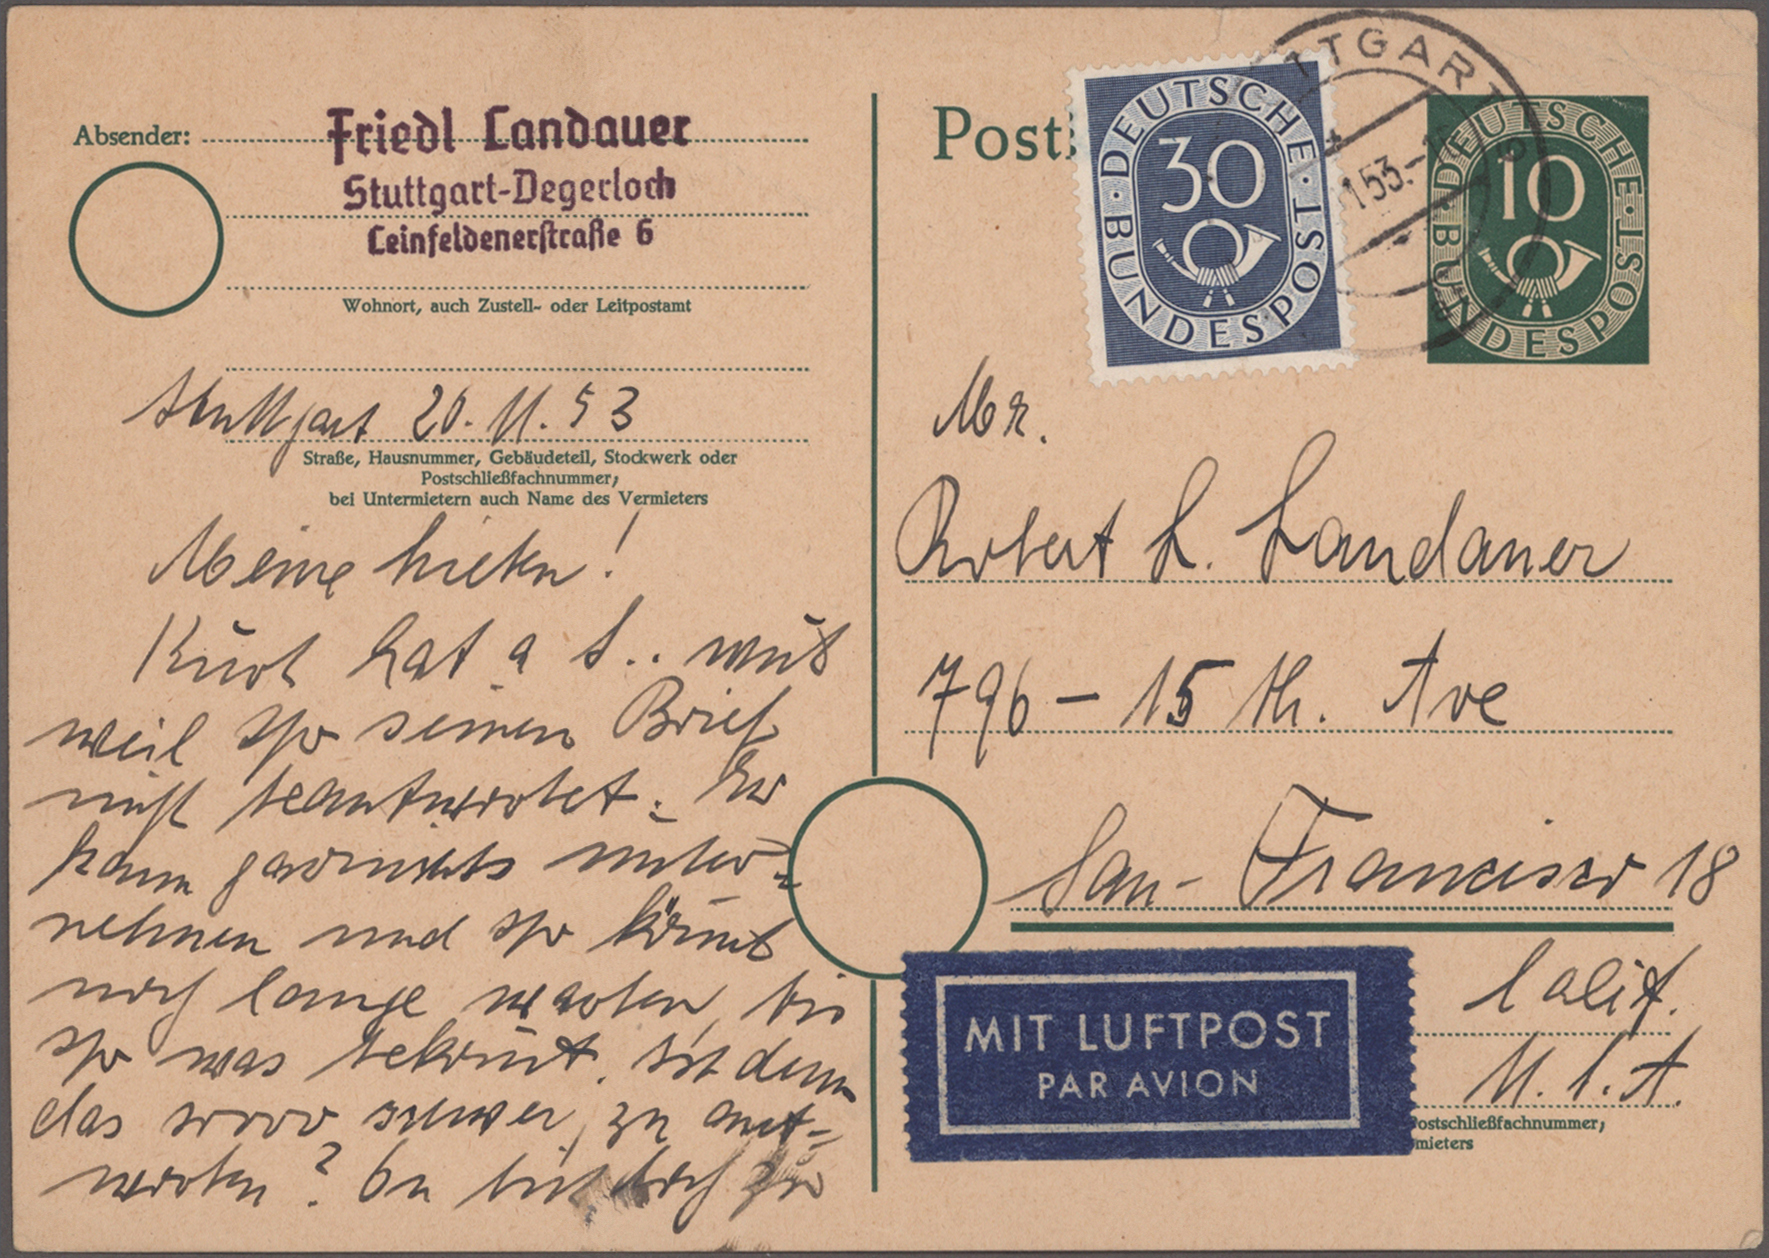 Absender:
Friedl Landauer
Stuttgart-Degerloch
Leinfeldenerstraße 6
Wohnort, auch Zustell- oder Leitpostamt
Stuttgart 20. 11. 53
Straße, Hausnummer, Gebäudeteil, Stockwerk oder
Postschließfachnummer;
bei Untermietern auch Name des Vermieters
Meine
Kurt hat a
weil Ihr seinen Brief
nicht beantwortet. Er
kann garnichts unter=
nehmen und Ihr könnt
noch lange warten, bis
Ihr was bekommt. Ist denn
das soooo schwer, zu ant=
worten? Du bist doch
Post
DEUTSCHE BUNDESPOST
30
TTGART
1.53.-1
DEUTSCHE BUNDESPOST
10
Mr.
Robert L. Landauer
796 – 15 th. Ave
San-Francisco 18
Calif.
U.S.A.
MIT LUFTPOST
PAR AVION
ostschließfachnummer;
mieters